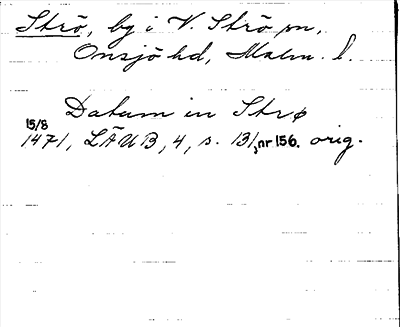 Strö, by i V. Strö sn,
Onsjö hd, Malm. l.
Datum in Strø
15/8
1471, LÄUB, 4, s. 131, nr 156. orig.